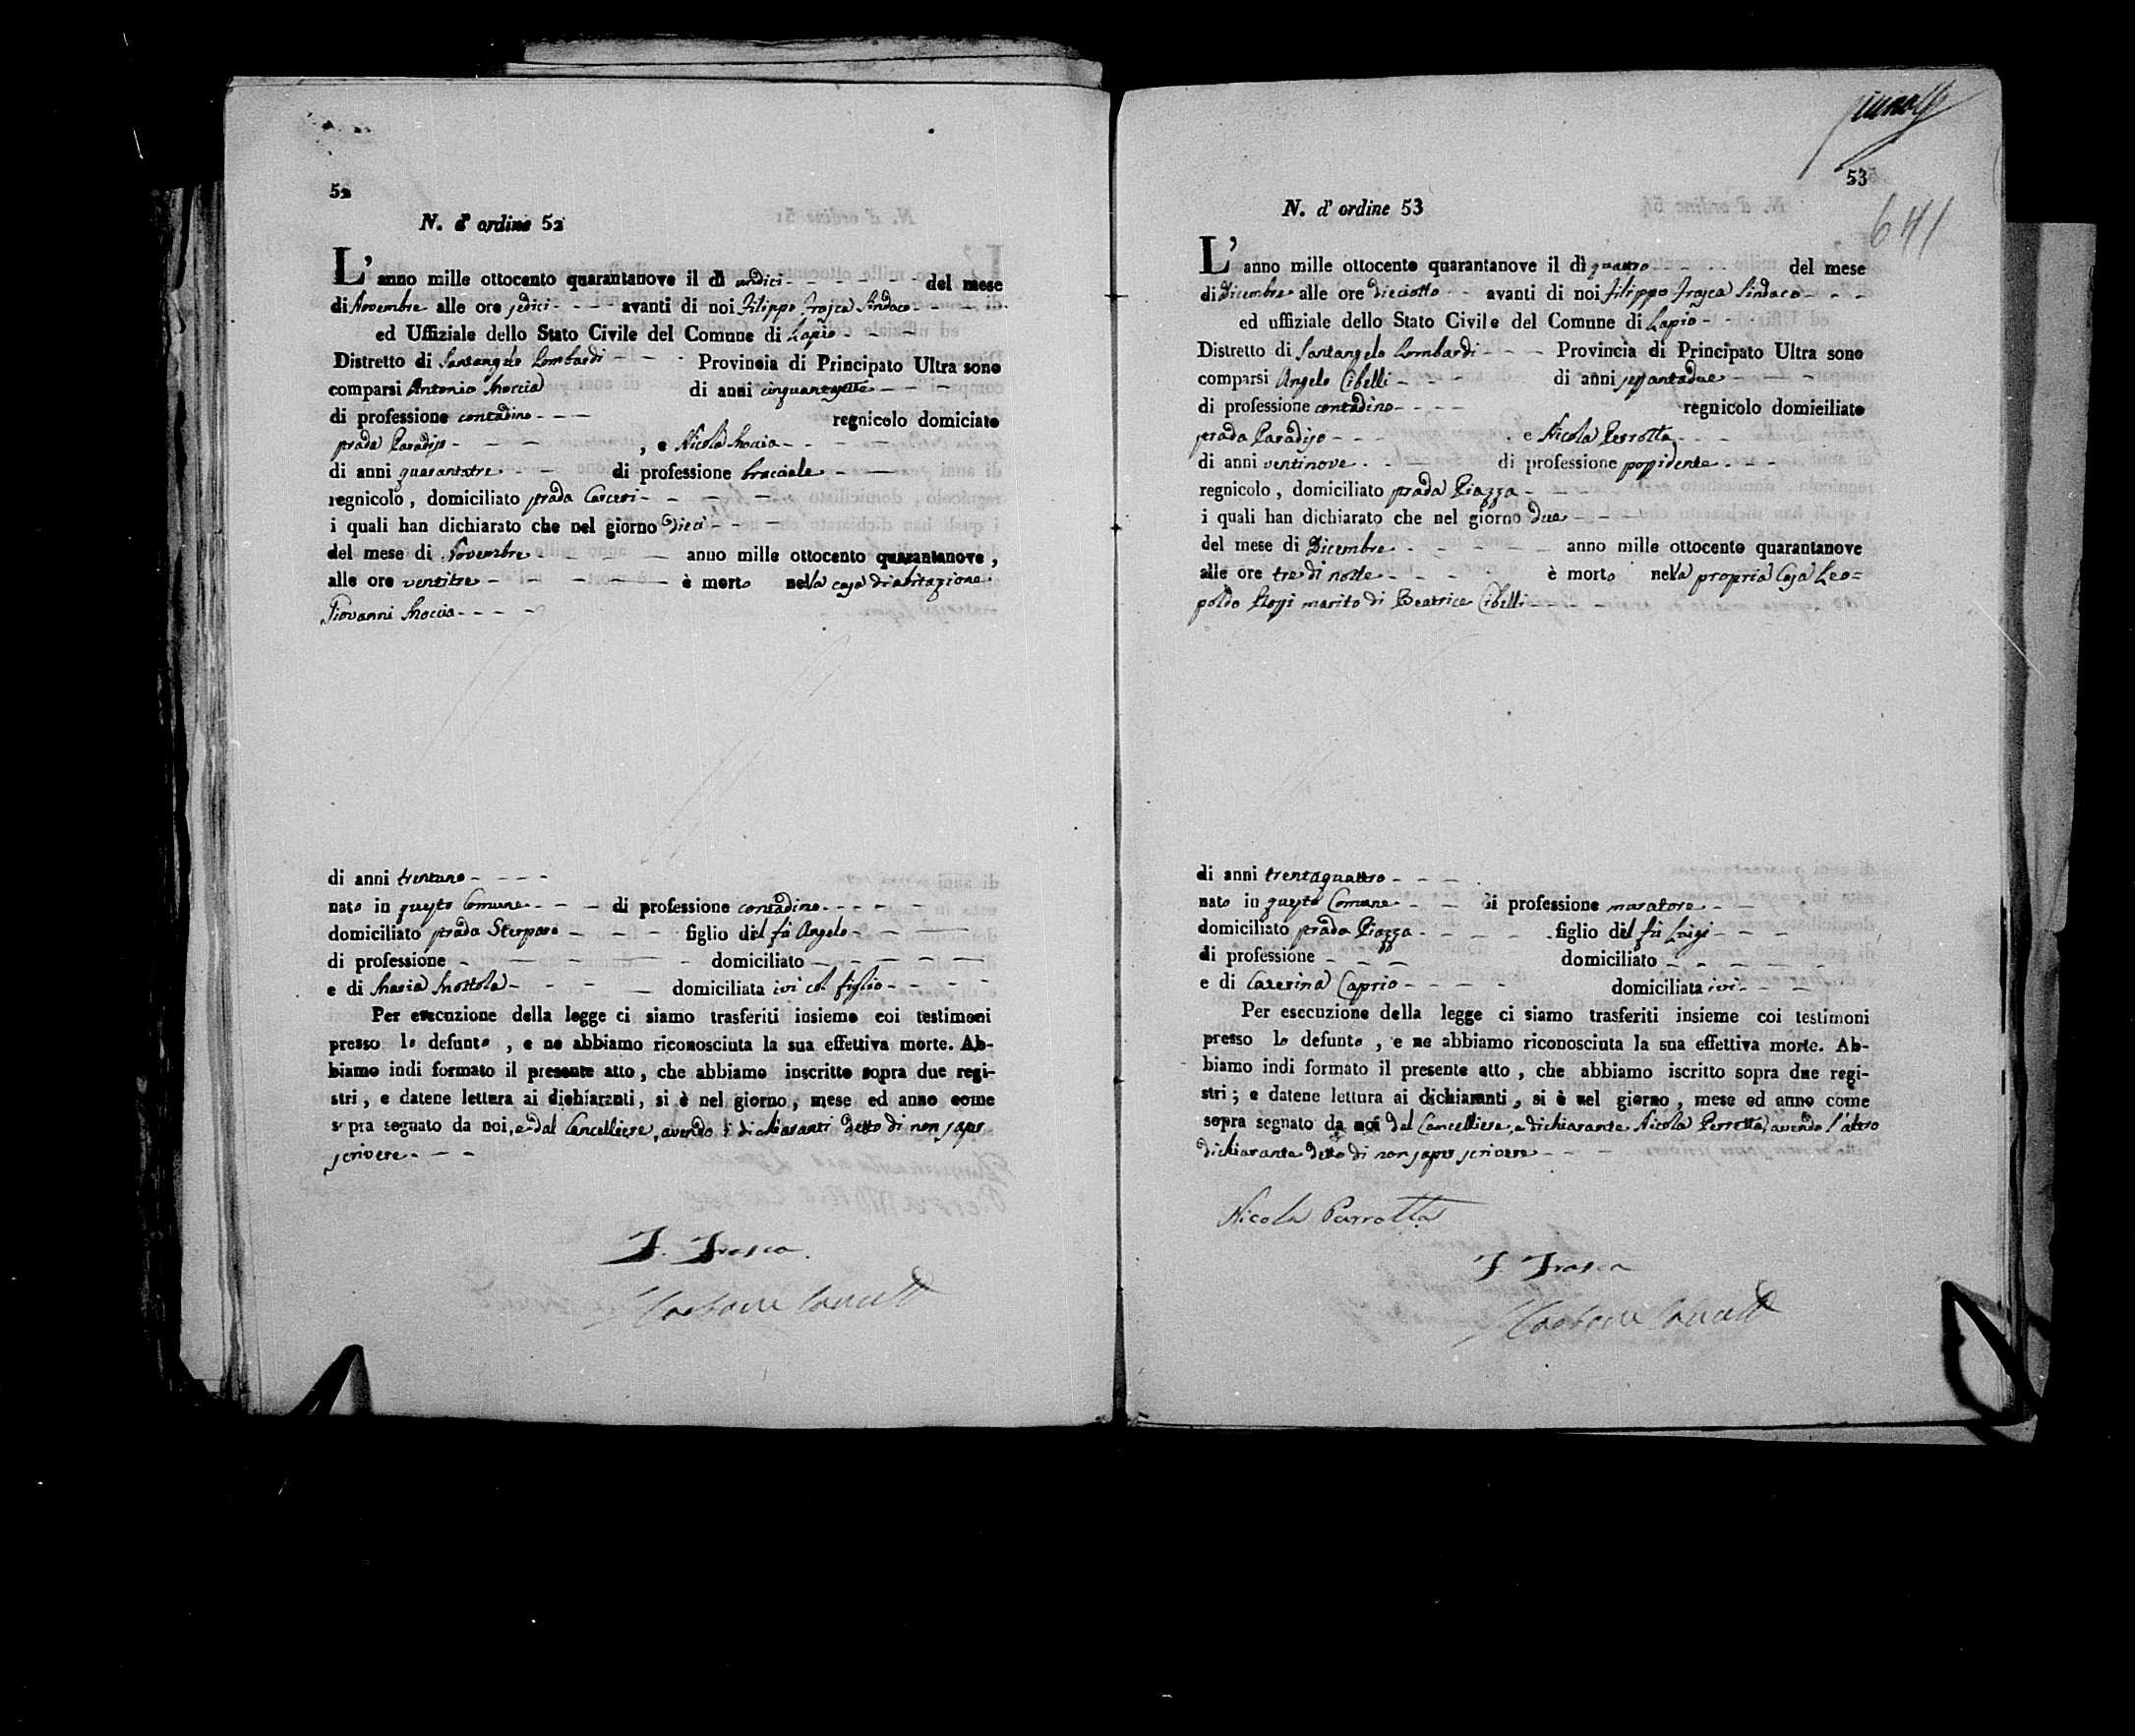 52
N. d' ordine 52
L' anno mille ottocento quarantanove il dì undici del mese
di Novembre alle ore sedici avanti di noi Filippo Frasca Sindaco
ed Uffiziale dello Stato Civile del Comune di Lapio
Distretto di Santangelo Lombardi Provincia di Principato Ultra sono
comparsi Antonio Moccia di anni cinquantasette
di professione contadino regnicolo domiciato
strada Paradiso , e Nicola Moccia
di anni quarantatre di professione bracciale
regnicolo, domiciliato strada Carceri
i quali han dichiarato che nel giorno dieci
del mese di Novembre anno mille ottocento quarantanove,
alle ore ventitre è morto nella casa di abitazione
Giovanni Moccia
di anni trentuno
nato in questo Comune di professione contadino
domiciliato strada Sterparo figlio del fù Angelo
di professione domiciliato
e di Maria Mottola domiciliata ivi col figlio
Per esecuzione della legge ci siamo trasferiti insieme coi testimoni
presso lo defunto, e ne abbiamo riconosciuta la sua effettiva morte. Ab-
biamo indi formato il presente atto, che abbiamo inscritto sopra due regi-
stri, e datene lettura ai dichiaranti, si è nel giorno, mese ed anno come
sopra segnato da noi, e dal Cancelliere, avendo i dichiaranti detto di non saper
scrivere
F. Frasca
53
641
N. d' ordine 53
L' anno mille ottocento quarantanove il dì quattro del mese
di Dicembre alle ore dieciotto avanti di noi Filippo Frasca Sindaco
ed uffiziale dello Stato Civile del Comune di Lapio
Distretto di Santangelo Lombardi Provincia di Principato Ultra sono
comparsi Angelo Cibelli di anni sessantadue
di professione contadino regnicolo domiciliato
strada Paradiso e Nicola Perrotta
di anni ventinove di professione possidente
regnicolo, domiciliato strada Piazza
i quali han dichiarato che nel giorno due
del mese di Dicembre anno mille ottocento quarantanove
alle ore tre di notte è morto nella propria Casa Leo=
poldo Rossi marito di Beatrice Cibelli
di anni trentaquattro
nato in questo Comune di professione muratore
domiciliato strada Piazza figlio del fù Luigi
di professione domiciliato
e di Caterina Caprio domiciliata ivi
Per esecuzione della legge ci siamo trasferiti insieme coi testimoni
presso lo defunto, e ne abbiamo riconosciuta la sua effettiva morte. Ab-
biamo indi formato il presente atto, che abbiamo iscritto sopra due regi-
stri; e datene lettura ai dichiaranti, si è nel giorno, mese ed anno come
sopra segnato da noi dal Cancelliere, e dichiarante Nicola Perrotta, avendo l'altro
dichiarante detto di non saper scrivere
Nicola Perrotta
F. Frasca